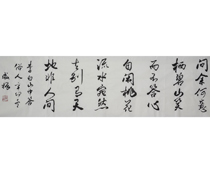 问余何意
栖碧山笑
而不答心
自闲桃花
流水宛然
去别有天
地非人间
李白山中答
俗人